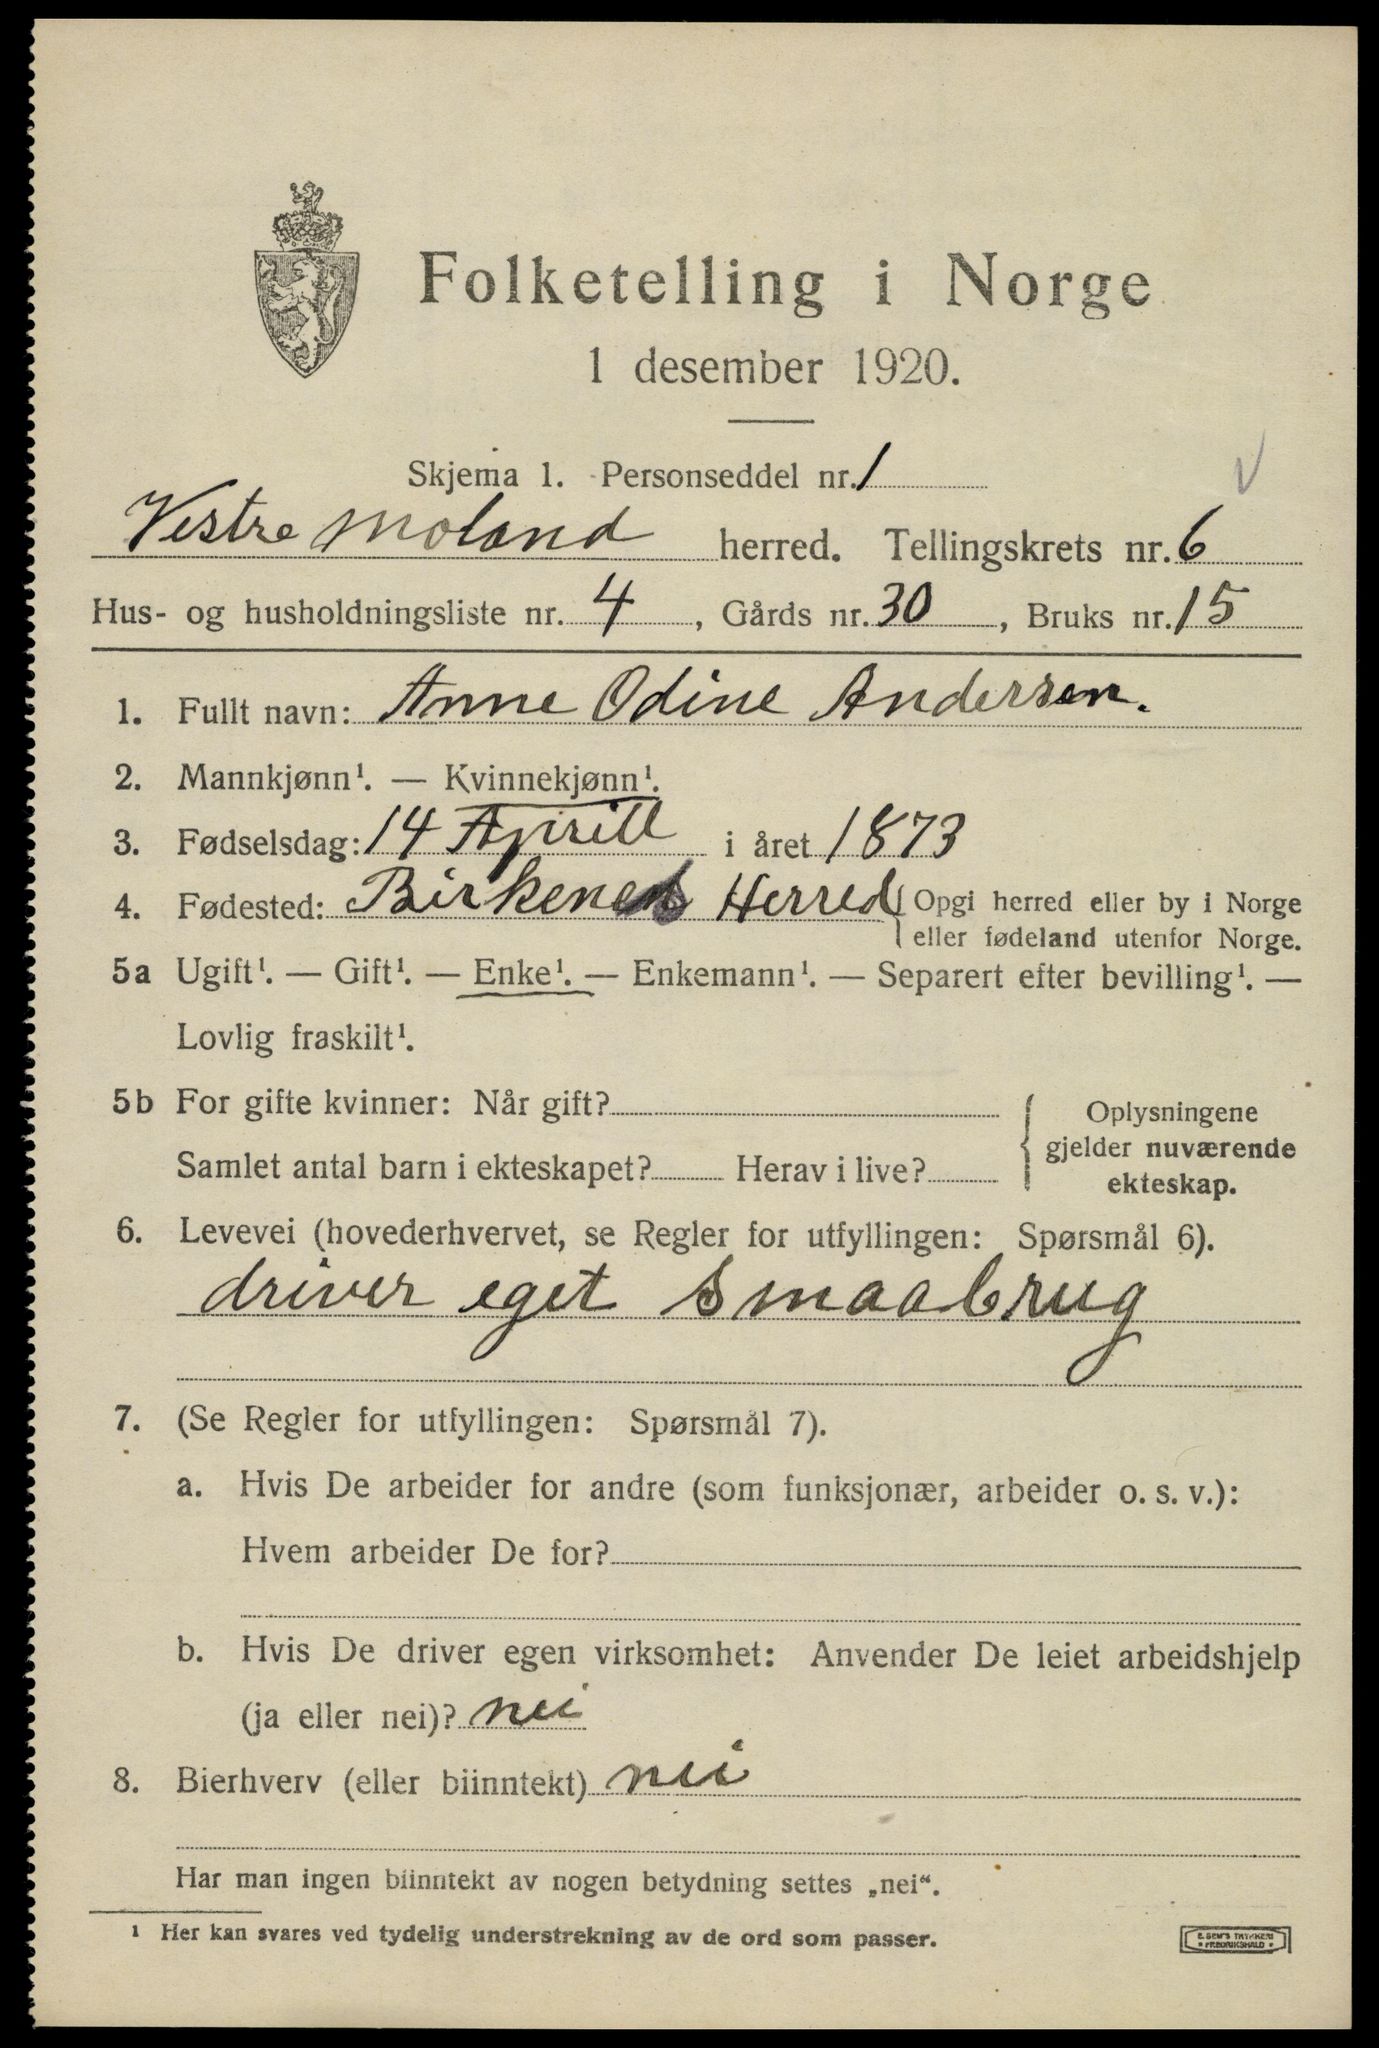 Folketelling i Norge
1 desember 1920.
Skjema 1. Personseddel nr. 1
Vestre Moland herred. Tellingskrets nr. 6
Hus- og husholdningsliste nr. 4, Gårds nr. 30, Bruks nr. 15
1. Fullt navn: Anne Odine Andersen.
2. Mannkjønn¹. — Kvinnekjønn¹.
3. Fødselsdag: 14 Aprill i året 1873
4. Fødested: Birkenes Herred { Opgi herred eller by i Norge
eller fødeland utenfor Norge.
5a Ugift¹. — Gift¹. — Enke¹. — Enkemann¹. — Separert efter bevilling¹. —
Lovlig fraskilt¹.
5b For gifte kvinner: Når gift?
Samlet antal barn i ekteskapet? Herav i live?
{ Oplysningene
gjelder nuværende
ekteskap.
6. Levevei (hovederhvervet, se Regler for utfyllingen: Spørsmål 6).
driver eget smaabrug
7. (Se Regler for utfyllingen: Spørsmål 7).
a. Hvis De arbeider for andre (som funksjonær, arbeider o. s. v.):
Hvem arbeider De for?
b. Hvis De driver egen virksomhet: Anvender De leiet arbeidshjelp
(ja eller nei)? nei
8. Bierhverv (eller biinntekt) nei
Har man ingen biinntekt av nogen betydning settes „nei“.
¹ Her kan svares ved tydelig understrekning av de ord som passer.
E. SEM'S TRYKKERI
• FREDRIKSHALD •